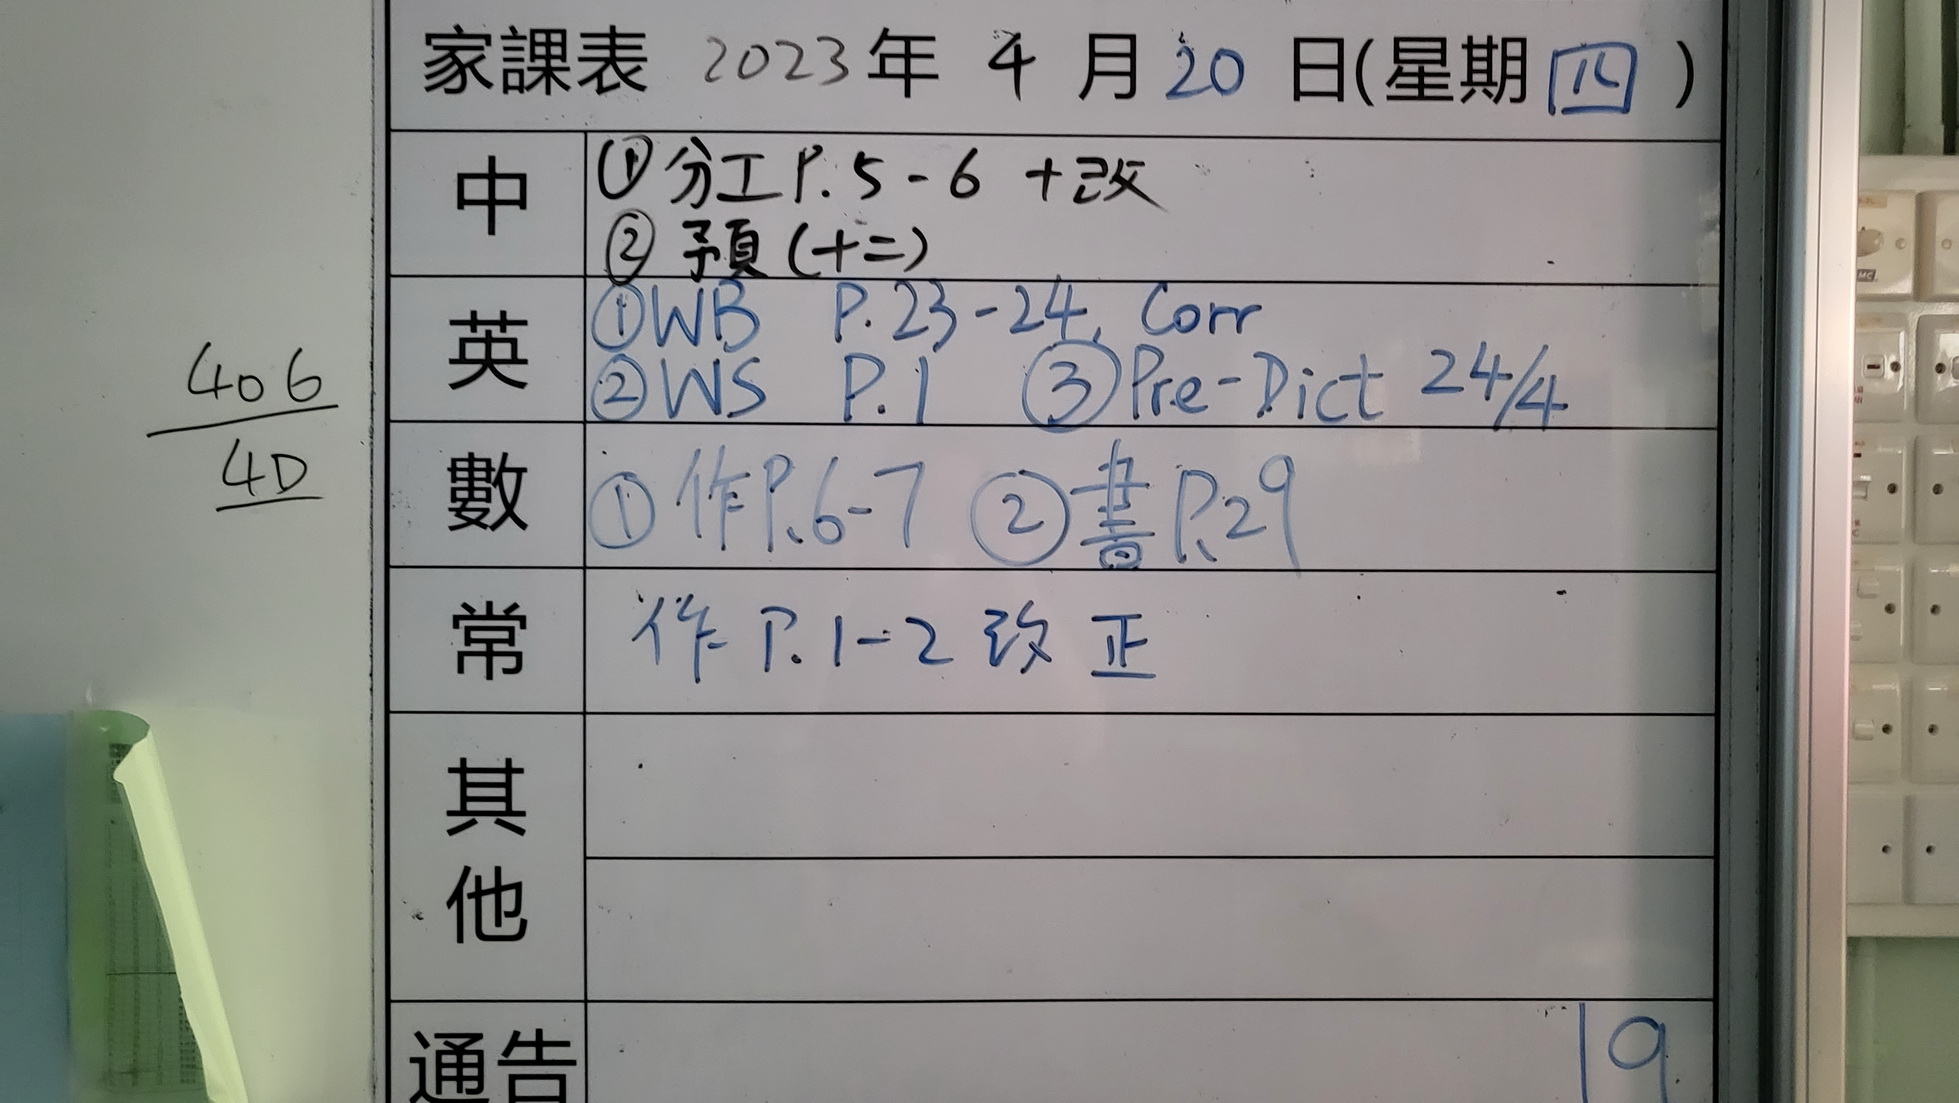 家課表 2023年 4月20日(星期四)
中
① 分工P.5-6 +改
② 預(十二)
英
①WB P.23-24, Corr
②WS P.1 ③Pre-Dict 24/4
數
①作P.6-7 ②書P.29
常
作P.1-2改正
其他
通告
19
406
4D